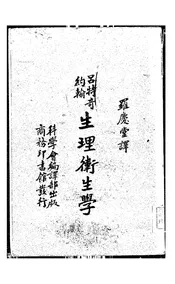 羅慶堂譯
呂特奇
約翰
生理衛生學
科學會編譯部出版
商務印書館發行